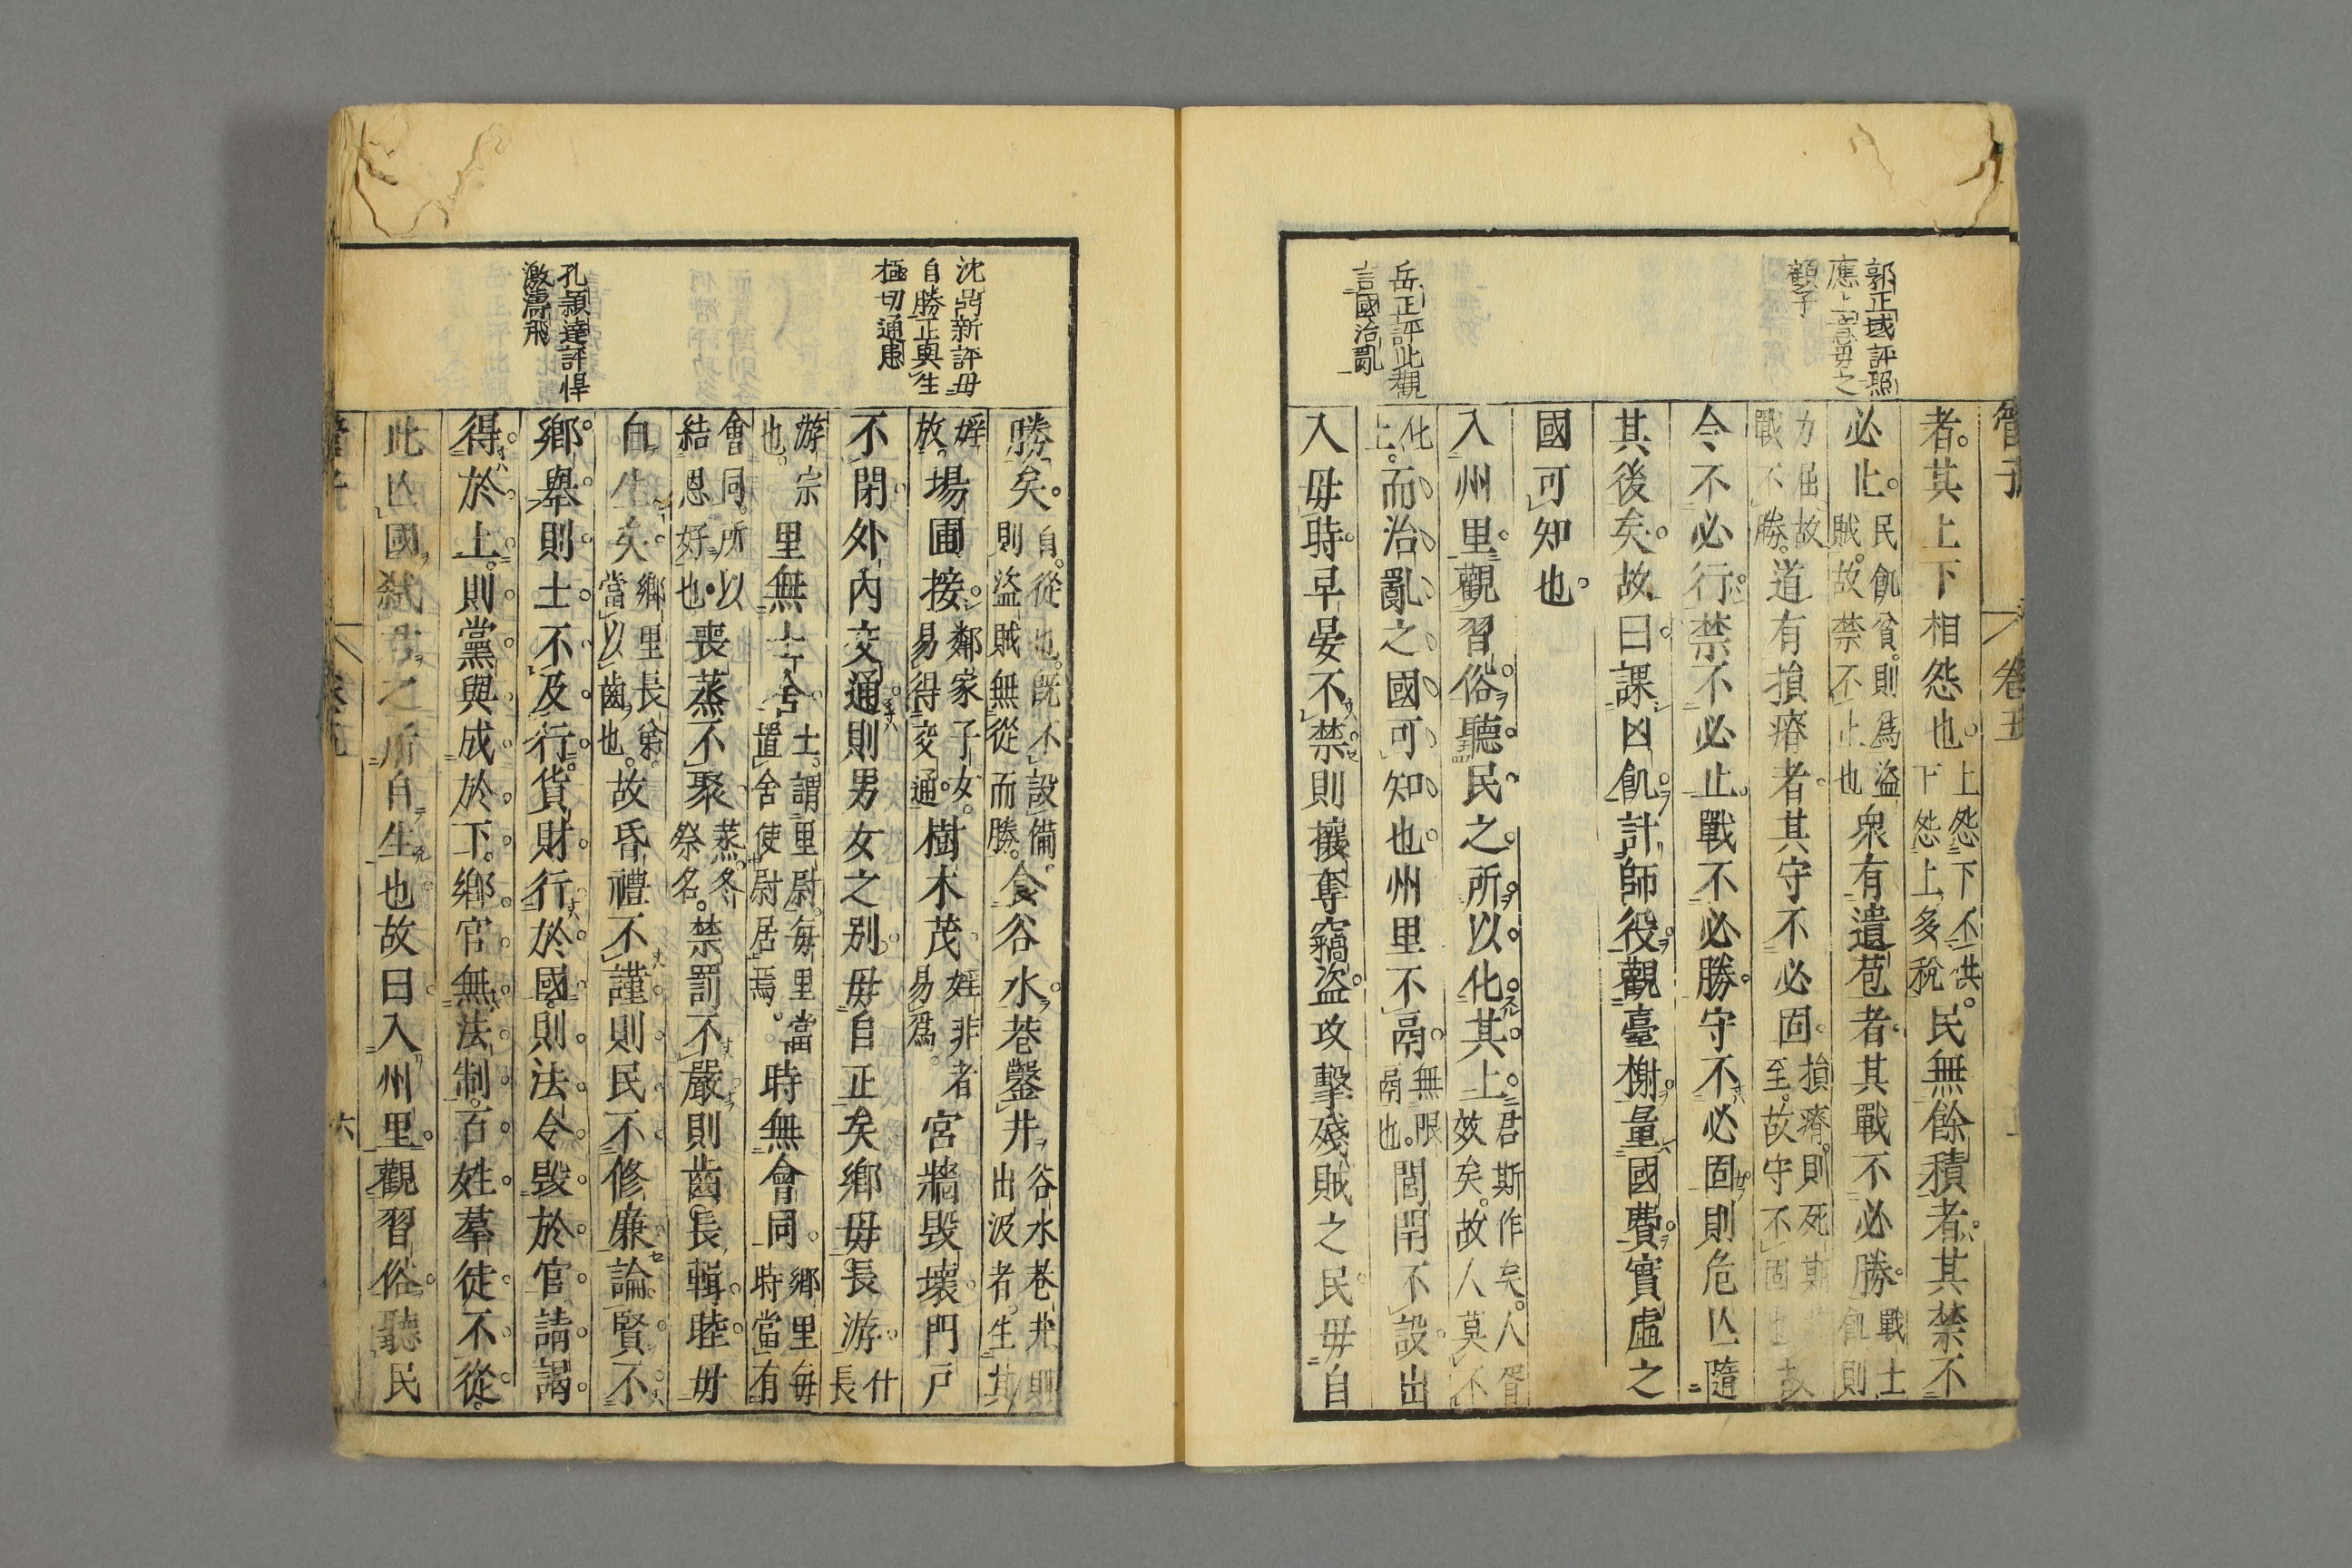 管子
卷五
郭正域評照
應上意毋之
顧子
者其上下相怨也上怨下不供下怨上多稅民無餘積者其禁不
必止民飢貧則為盜賊故禁不止也眾有遺苞者其戰不必勝戰士飢則
力屈故戰不勝道有損瘠者其守不必固損瘠則死至故守不固也故
令不必行禁不必止戰不必勝守不必固則危亾隨
其後矣故曰課凶飢計師役觀臺榭量國費實虛之
國可知也
岳正評此觀
言國治亂
入州里觀習俗聽民之所以化其上君斯作矣人胥效矣故人莫不
化上而治亂之國可知也州里不鬲無限鬲也閭閈不設出
入毋時早晏不禁則攘奪竊盜攻擊殘賊之民毋自
沈鼎新評毋
自勝正與生
極切通患
勝矣自從也既不設備則盜賊無從而勝食谷水巷鑿井谷水巷井則出汲者生其
婬放場圃接鄰家子女易得交通樹木茂婬非者易為宮牆毀壞門戶
不閉外內交通則男女之別毋自正矣鄉毋長游什長
游宗也里無士舍士謂里尉每里當置舍使尉居焉時無會同鄉里每時當有
會同所以結恩好也喪蒸不聚蒸冬祭名禁罰不嚴則齒長輯睦毋
自生矣鄉里長弟當以齒也故昏禮不謹則民不修廉論賢不
孔穎達評悍
激濤飛
鄉舉則士不及行貨財行於國則法令毀於官請謁
得於上則黨與成於下鄉官無法制百姓羣徒不從
此亾國弒君之所自生也故曰入州里觀習俗聽民
管子
卷五
六